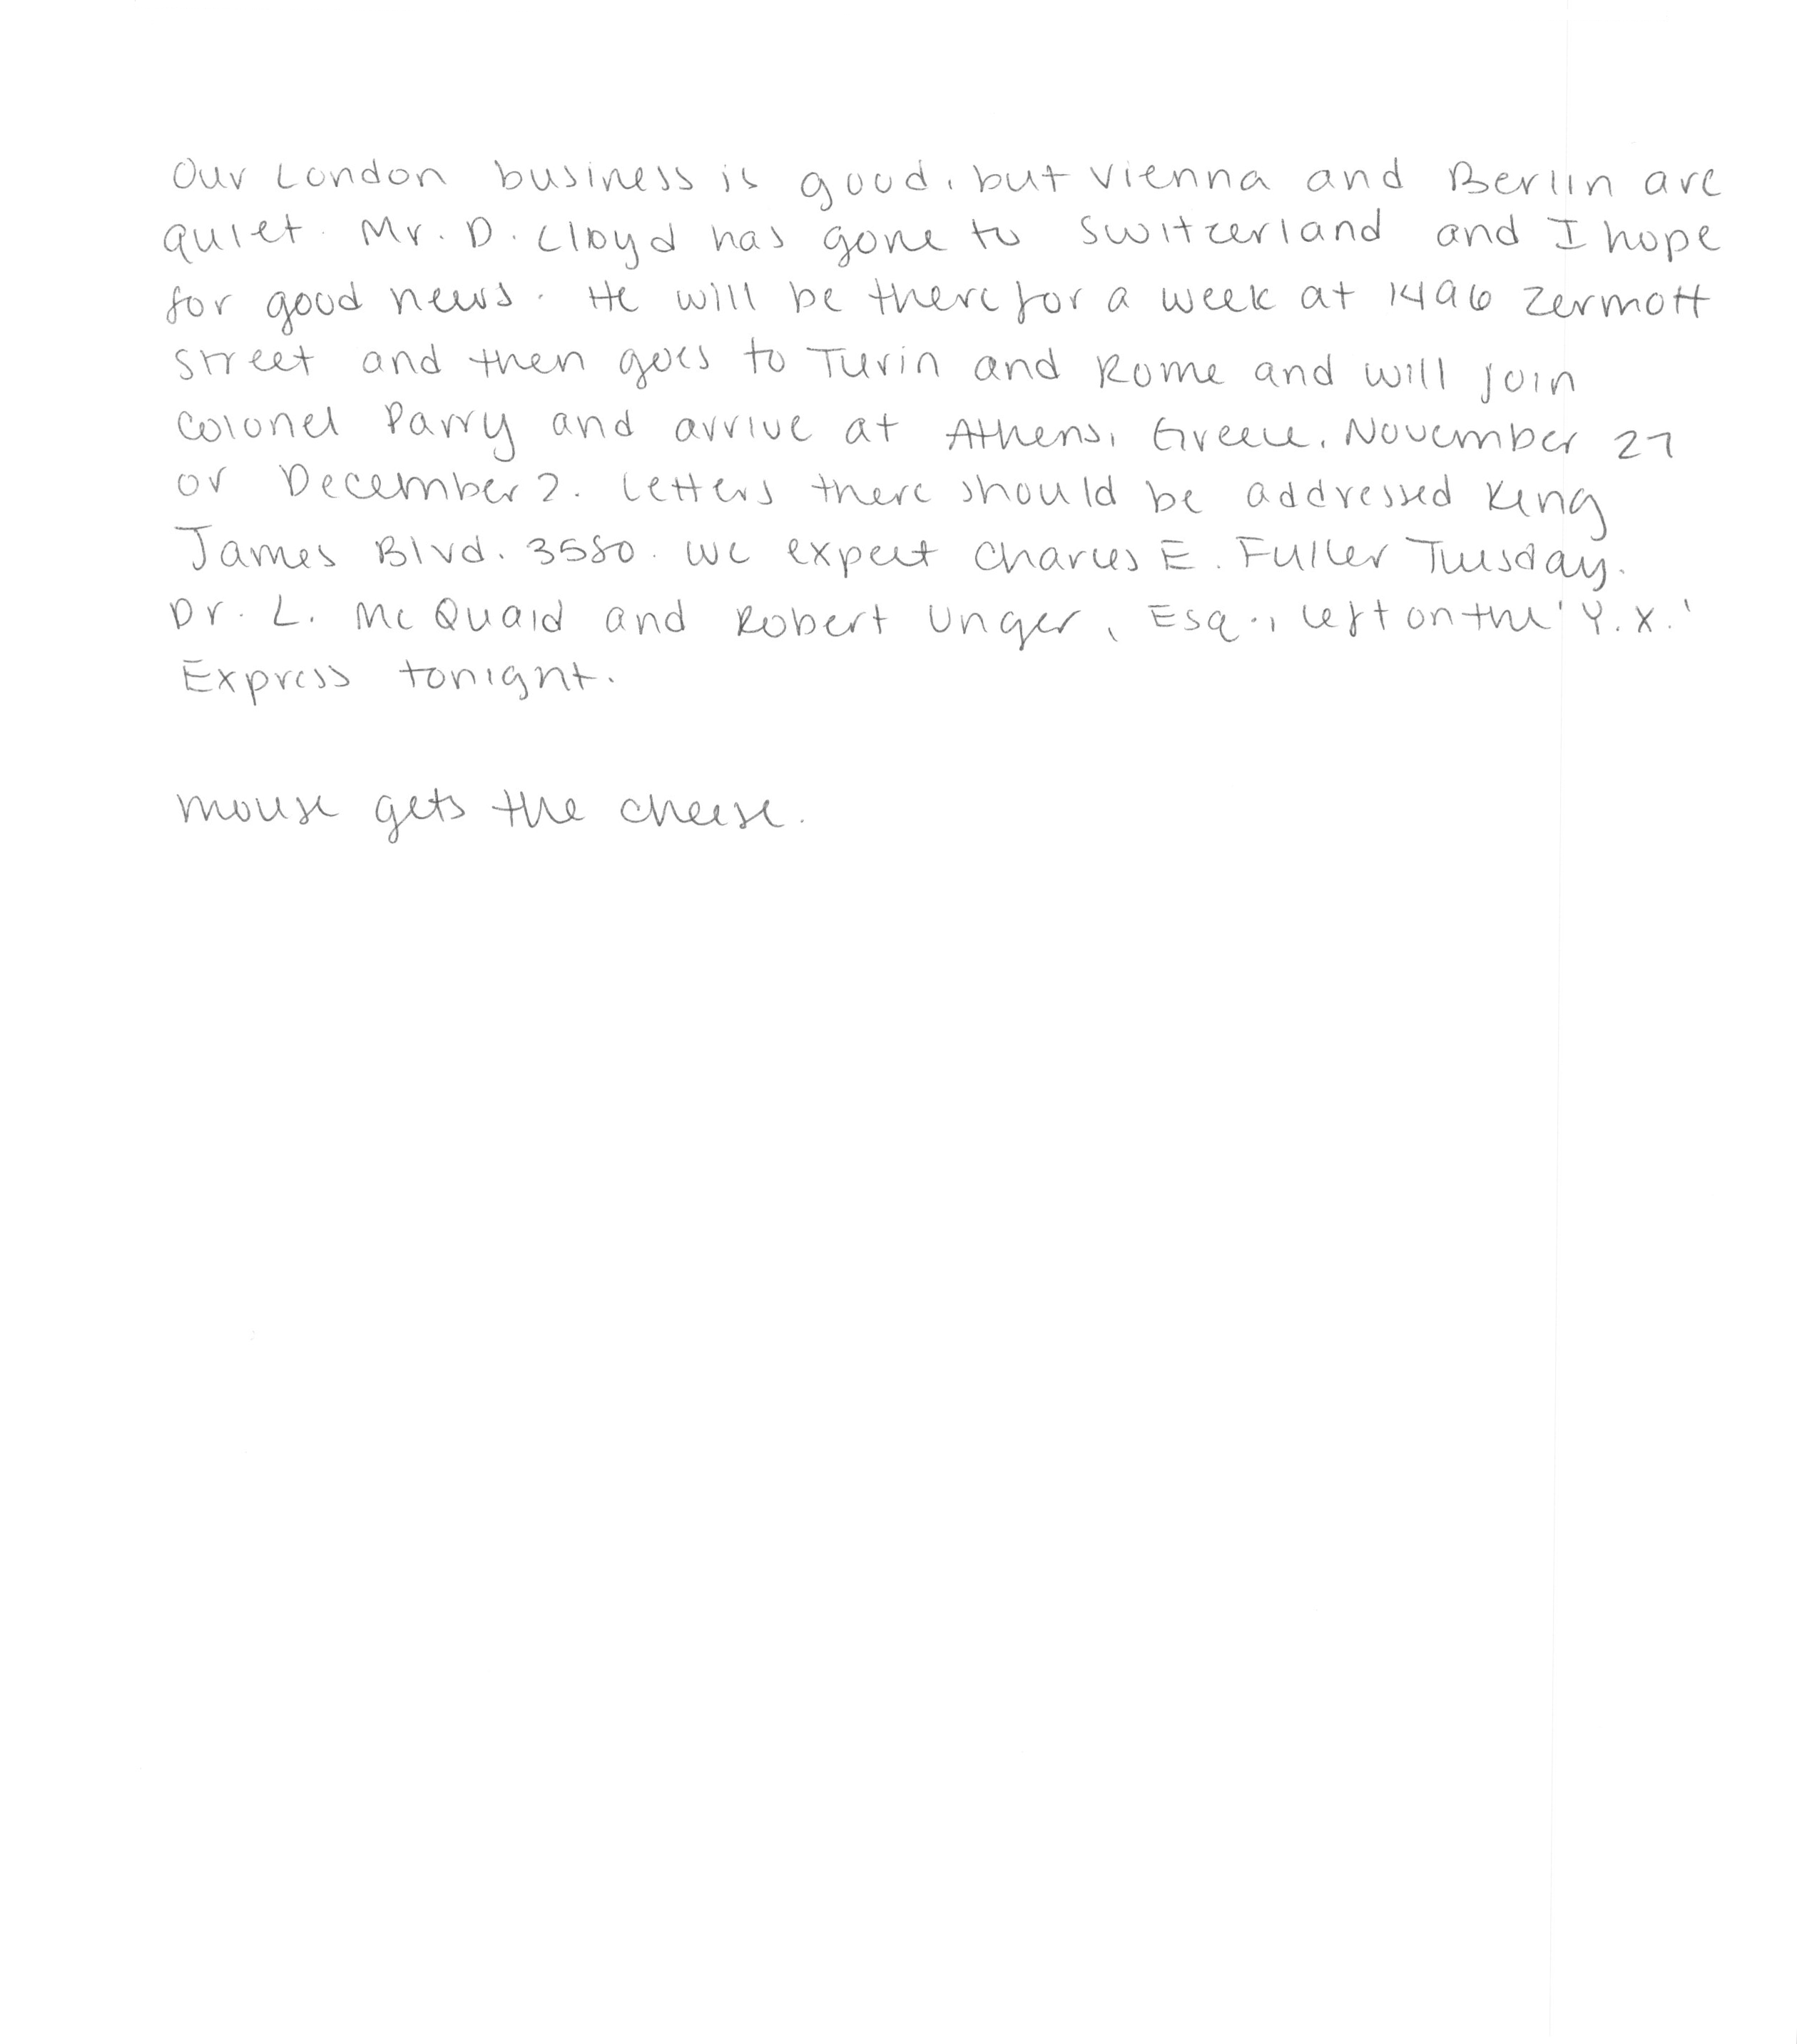 Our London business is good, but Vienna and Berlin are
quiet. Mr. D. Lloyd has gone to Switzerland and I hope
for good news. He will be there for a week at 1496 Zermott
Street and then goes to Turin and Rome and will join
Colonel Parry and arrive at Athens, Greece, November 27
or December 2. Letters there should be addressed King
James Blvd. 3580. We expect Charles E. Fuller Tuesday.
Dr. L. McQuaid and Robert Unger, Esq., left on the 'Y.X.'
Express tonight.
mouse gets the cheese.